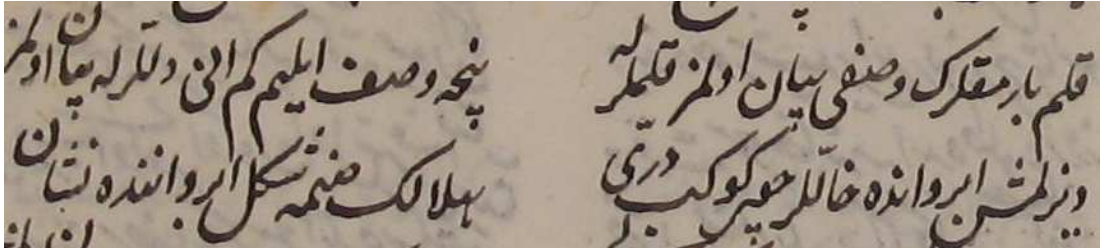 قلم بارمقلرك وصفی بیان اولمز قلملرله نیجه وصف ایلیم کم انی دللرله بیان اولمز
دیزلمش ابرواننده خاللر چو کوکب درّی هلالک شکل ابرواننده نشان